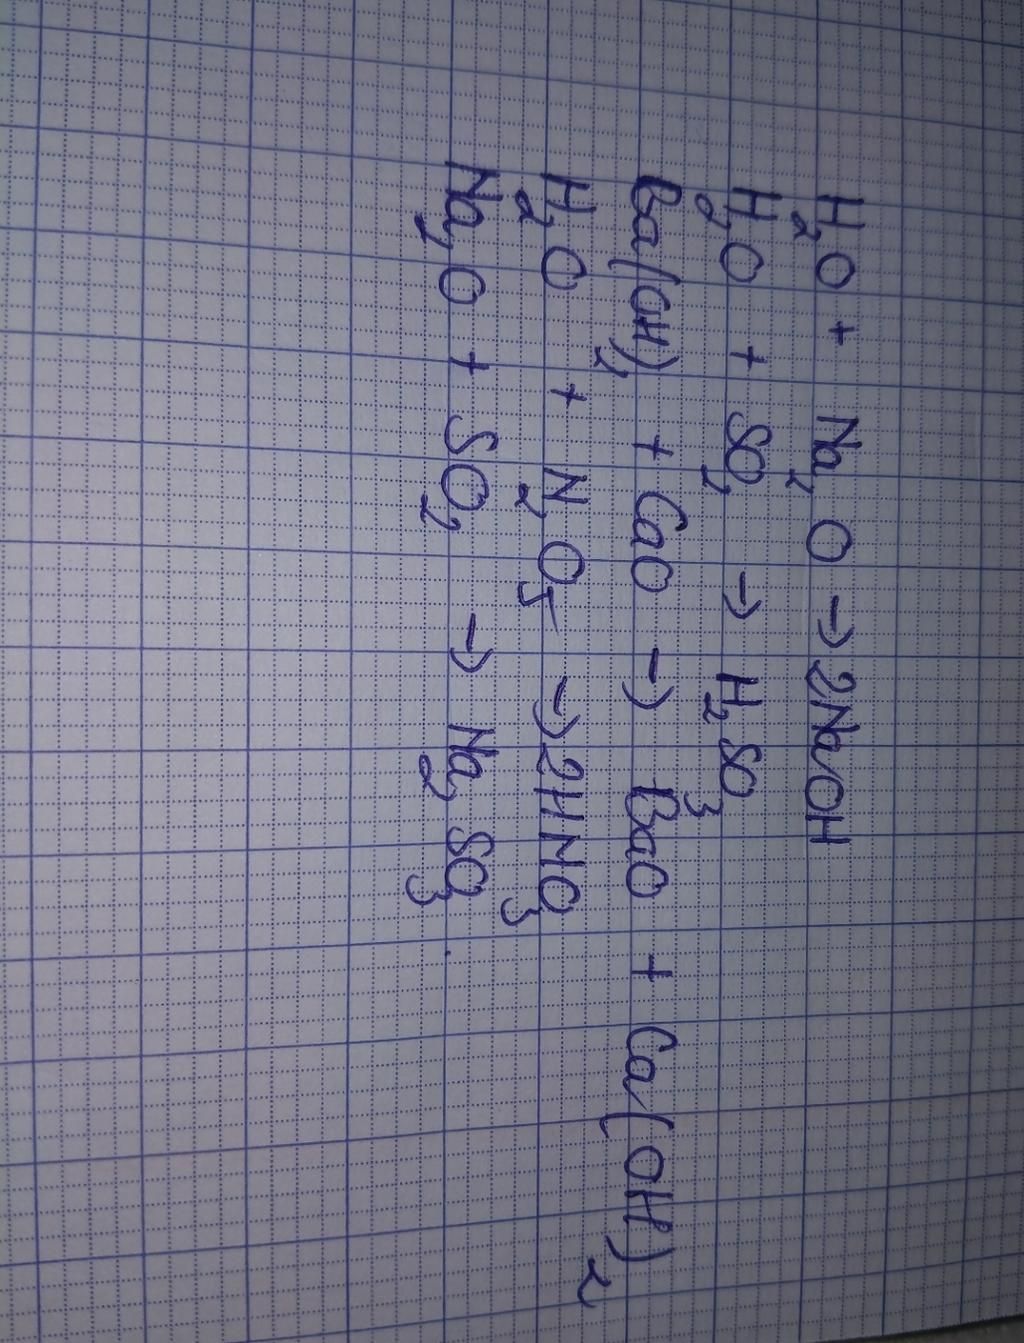 H₂O + Na₂O → 2NaOH
H₂O + SO₂ → H₂SO₃
Ba(OH)₂ + CaO → BaO + Ca(OH)₂
H₂O + N₂O₅ → 2HNO₃
Na₂O + SO₂ → Na₂SO₃.